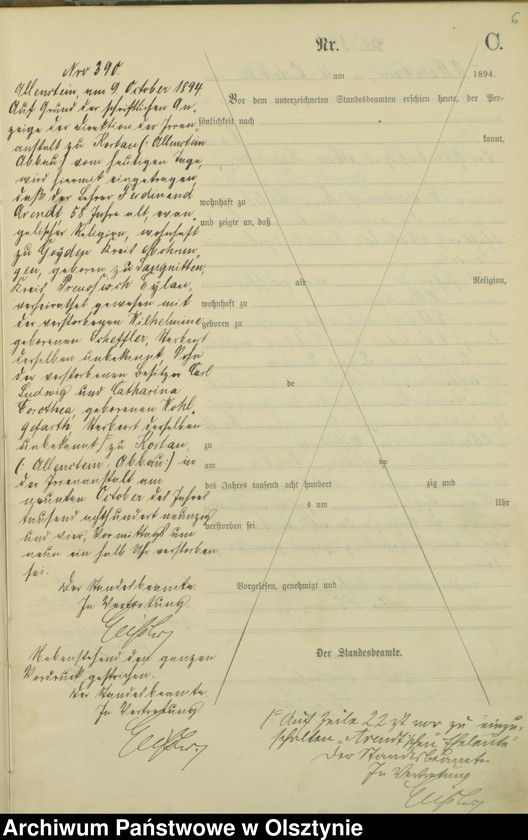 6
Nr.
C.
Nro 390.
am
1894.
Allenstein, am 9 October 1894
Auf Grund der schriftlichen An-
zeige der Direktion der Irren-
anstalt zu Kortau (: Allenstein
Abbau) vom heutigen Tage,
wird hiermit eingetragen,
daß der Lehrer Ferdinand
Arendt, 58 Jahre alt, evan-
gelischer Religion, wohnhaft
zu Goyden Kreis Mohrun-
gen, geboren zu Sangnitten,
Kreis Preussisch Eylau,
verheirathet gewesen mit
der verstorbenen Wilhelmine
geborenen Scheffler, Sterbeort
derselben unbekannt, Sohn
der verstorbenen Besitzer Carl
Ludwig und Catharina
Dorothea, geborenen Wohl-
gefarth, Sterbeort derselben
unbekannt, zu Kortau,
(: Allenstein, Abbau) in
der Irrenanstalt am
neunten October des Jahres
tausend achthundert neunzig
und vier, Vormittags um
neun ein halb Uhr verstorben
sei.
Der Standesbeamte.
In Vertretung.
Nebenstehend den ganzen
Vordruck gestrichen.
Der Standesbeamte
In Vertretung
Vor dem unterzeichneten Standesbeamten erschien heute, der Per-
sönlichkeit nach
kannt,
wohnhaft zu
und zeigte an, daß
alt
Religion,
wohnhaft zu
geboren zu
de
zu
am
des Jahres tausend acht hundert
zig und
s um
Uhr
verstorben sei
Vorgelesen, genehmigt und
Der Standesbeamte.
Auf Zeile 22 ist vor zu einzu-
schalten "Arendt'schen Eheleute"
Der Standesbeamte
In Vertretung
Archiwum Państwowe w Olsztynie